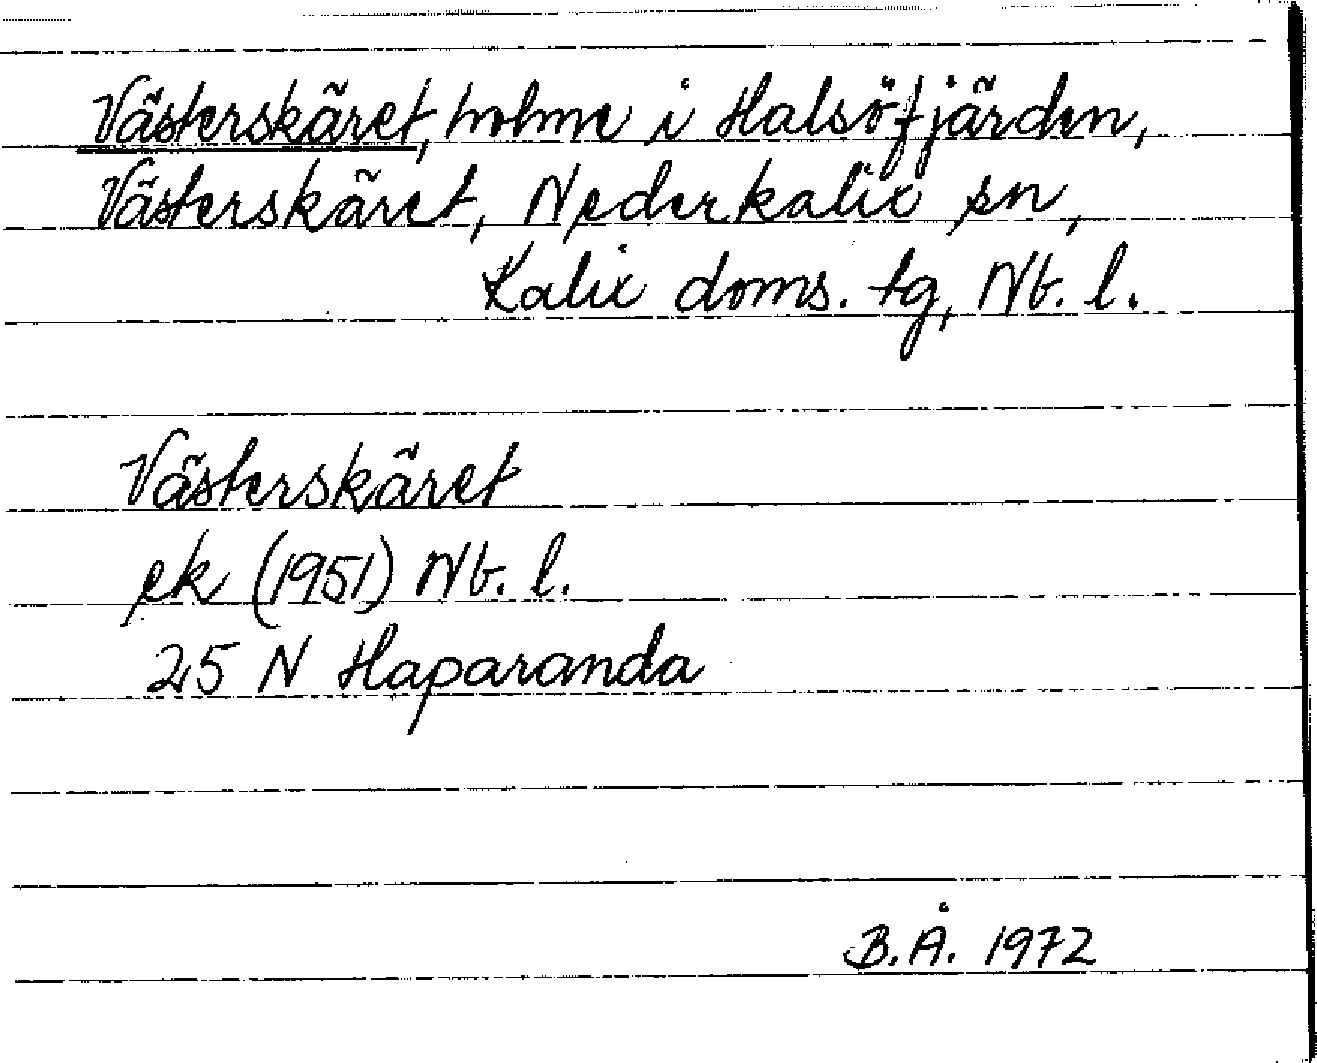 Västerskäret, holme i Halsöfjärden,
Västerskäret, Nederkalix sn,
Kalix doms. tg, Nb. l.
Västerskäret
ek (1951) Nb. l.
25 N Haparanda
B.Å. 1972